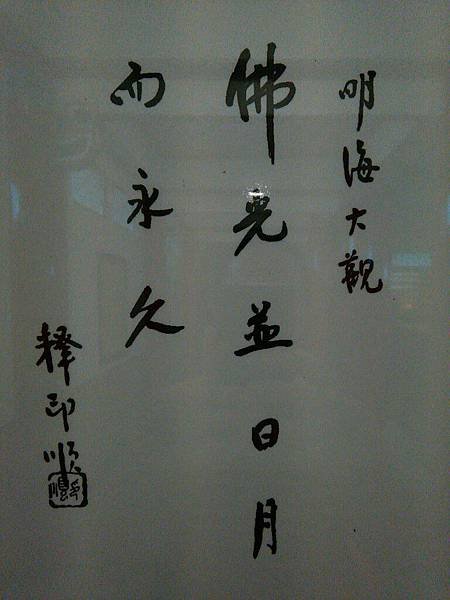 明海大觀
佛光並日月
而永久
釋印順